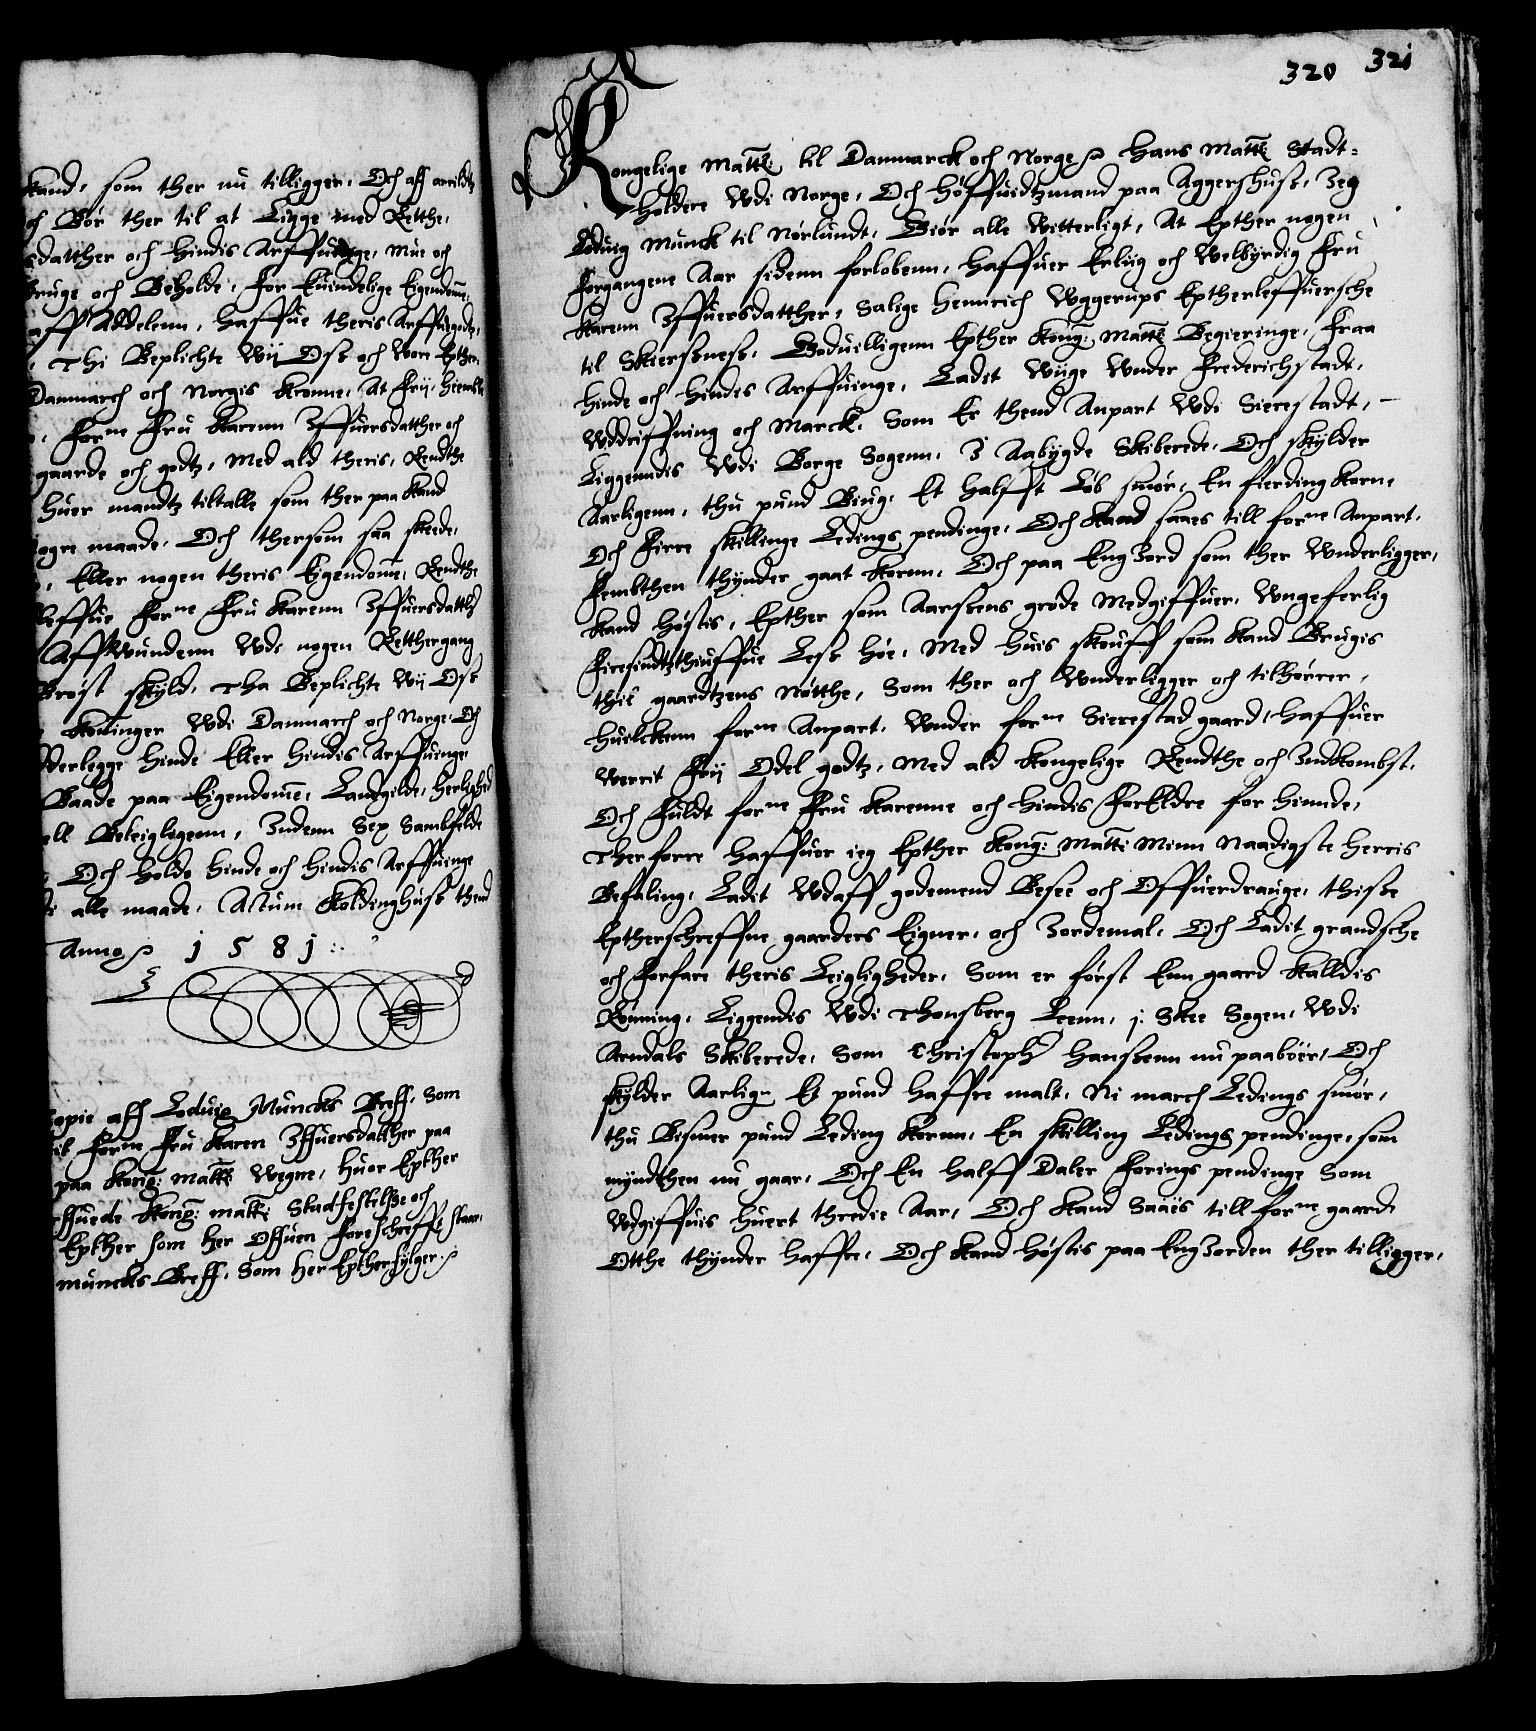 kand, som ther nu tilligger, Och aff arrildtz
och Bør ther til at Ligge med Retthe,
sdatther och hindis Arffuinge, Mue och
bruge och Beholde, for Euindelige Eigendomme
aff Addelenn, haffue theris Arffuegodtz,
Thi Beplichte Wij Oss och Vore Epther
Danmarch och Norgis Kronne, At frij, hiemble
forne Fru Karenn Iffuersdatther och
gaarde och godtz, Med ald theris, Rendthe
huer mandtz tiltalle som ther paa kand
nogre maade, Och thersom saa skeede,
Eller nogen theris Eigendomme, Rendthe
bleffue forne Fru Karenn Iffuersdatther
Affwundenn Wdi nogen Retthergang
Brøst skyld, Tha Beplichte Wij Oss
Koninger Wdi Danmarch och Norge, Och
Wederlegge hinde Eller hindis Arffuinge
Baade paa Eigendomme, Landgilde, herlighed
vell Beleigligenn, Indenn Sex Sambfelde
Och holde hinde och hindis Arffuinge
alle maade, Actum Koldinghuss thend
Anno 1581
Copie aff Loduig Muncks Breff, som
forne Fru Karen Iffuersdatther paa
paa Kong: Matts Wegne, huor Epther
haffuede Kong: Matts Stadfestelsse och
Epther som her Offuen foreschreffit staar,
Muncks Breff, Som her Eptherfylger
320 321
Kongelige Matts til Danmarck och Norges Hans Matts Stadt-
holdere Wdi Norge, Och høffuidtzmand paa Aggershuss, Jeg
Loduig Munck til Nørlundt, Giør alle Witterligt, At Epther nogen
forgangene Aar sidenn forlobenn, haffuer Erlüg och Welbyrdig Fru
Karenn Iffuersdatther, Salige Hennrich Wggerups Eptherleffuersche
til Skiersness, Goduilligenn Epther Kong: Matts Begieringe, fraa
hinde och hindis Arffuinge, Ladit Wiige Wnder Frederichstadt,
Wddriffning och Marck, Som Er thend Anpart Wdi Sierestadt,
Liggenndis Wdi Borge Sogenn, I Aabygde Skiberede, Och skylder
Aarligenn, thu pund Biug, Et halfft Lôb smør, En fierding Korn,
Och firre skillinge Ledings pendinge, Och Kand saaes till forne Anpart,
femthen thynder gaat Kornn, Och paa Eng Jord som ther Wnderligger,
kand høstis, Epther som Aarssens grøde Medgiffuer, Wngeferlig
firesindtzthiuffue Less høe, Med huis skouff som kand Brugis
thil gaardtzens Nøtthe, Som ther och Wnderligger och tilhørrer,
huilckenn forne Anpart, Wnder forne Sierestad gaard, haffuer
werrit frij Odel godtz, Med ald Kongelige Rendthe och Indkombst,
Och fuldt forne Fru Karenne och hindis forEldre for hinnde,
Ther forre haffuer ieg Epther Kong: Matts Minn Naadigste Herris
Befaling, Ladit Wdaff godemend Besee och Offuerdrauge, thisse
Eptherschreffne gaarders Eigner, och Jordemal, Och Ladit grandsche
och forfare theris Leigligheder, Som er først Enn gaard Kalldis
Rønning, Liggendis Wdi Thonsberg Leenn, j: Skee Sogen, Wdi
Arndals Skiberede, Som Christopher Hanssenn nu paaboer, Och
skylder Aarlige Et pund haffre malt, Ni march Ledings smør,
thu Bismer pund Leding Kornn, En skilling Ledings pendinge, som
myndthen nu gaar, Och En halff Daler forings pendinge Som
Wdgiffuis huert thredie Aar, Och kand Saaës till forne gaard
Otthe thynder haffre, Och kand høstis paa Eng Jorden ther tilligger,